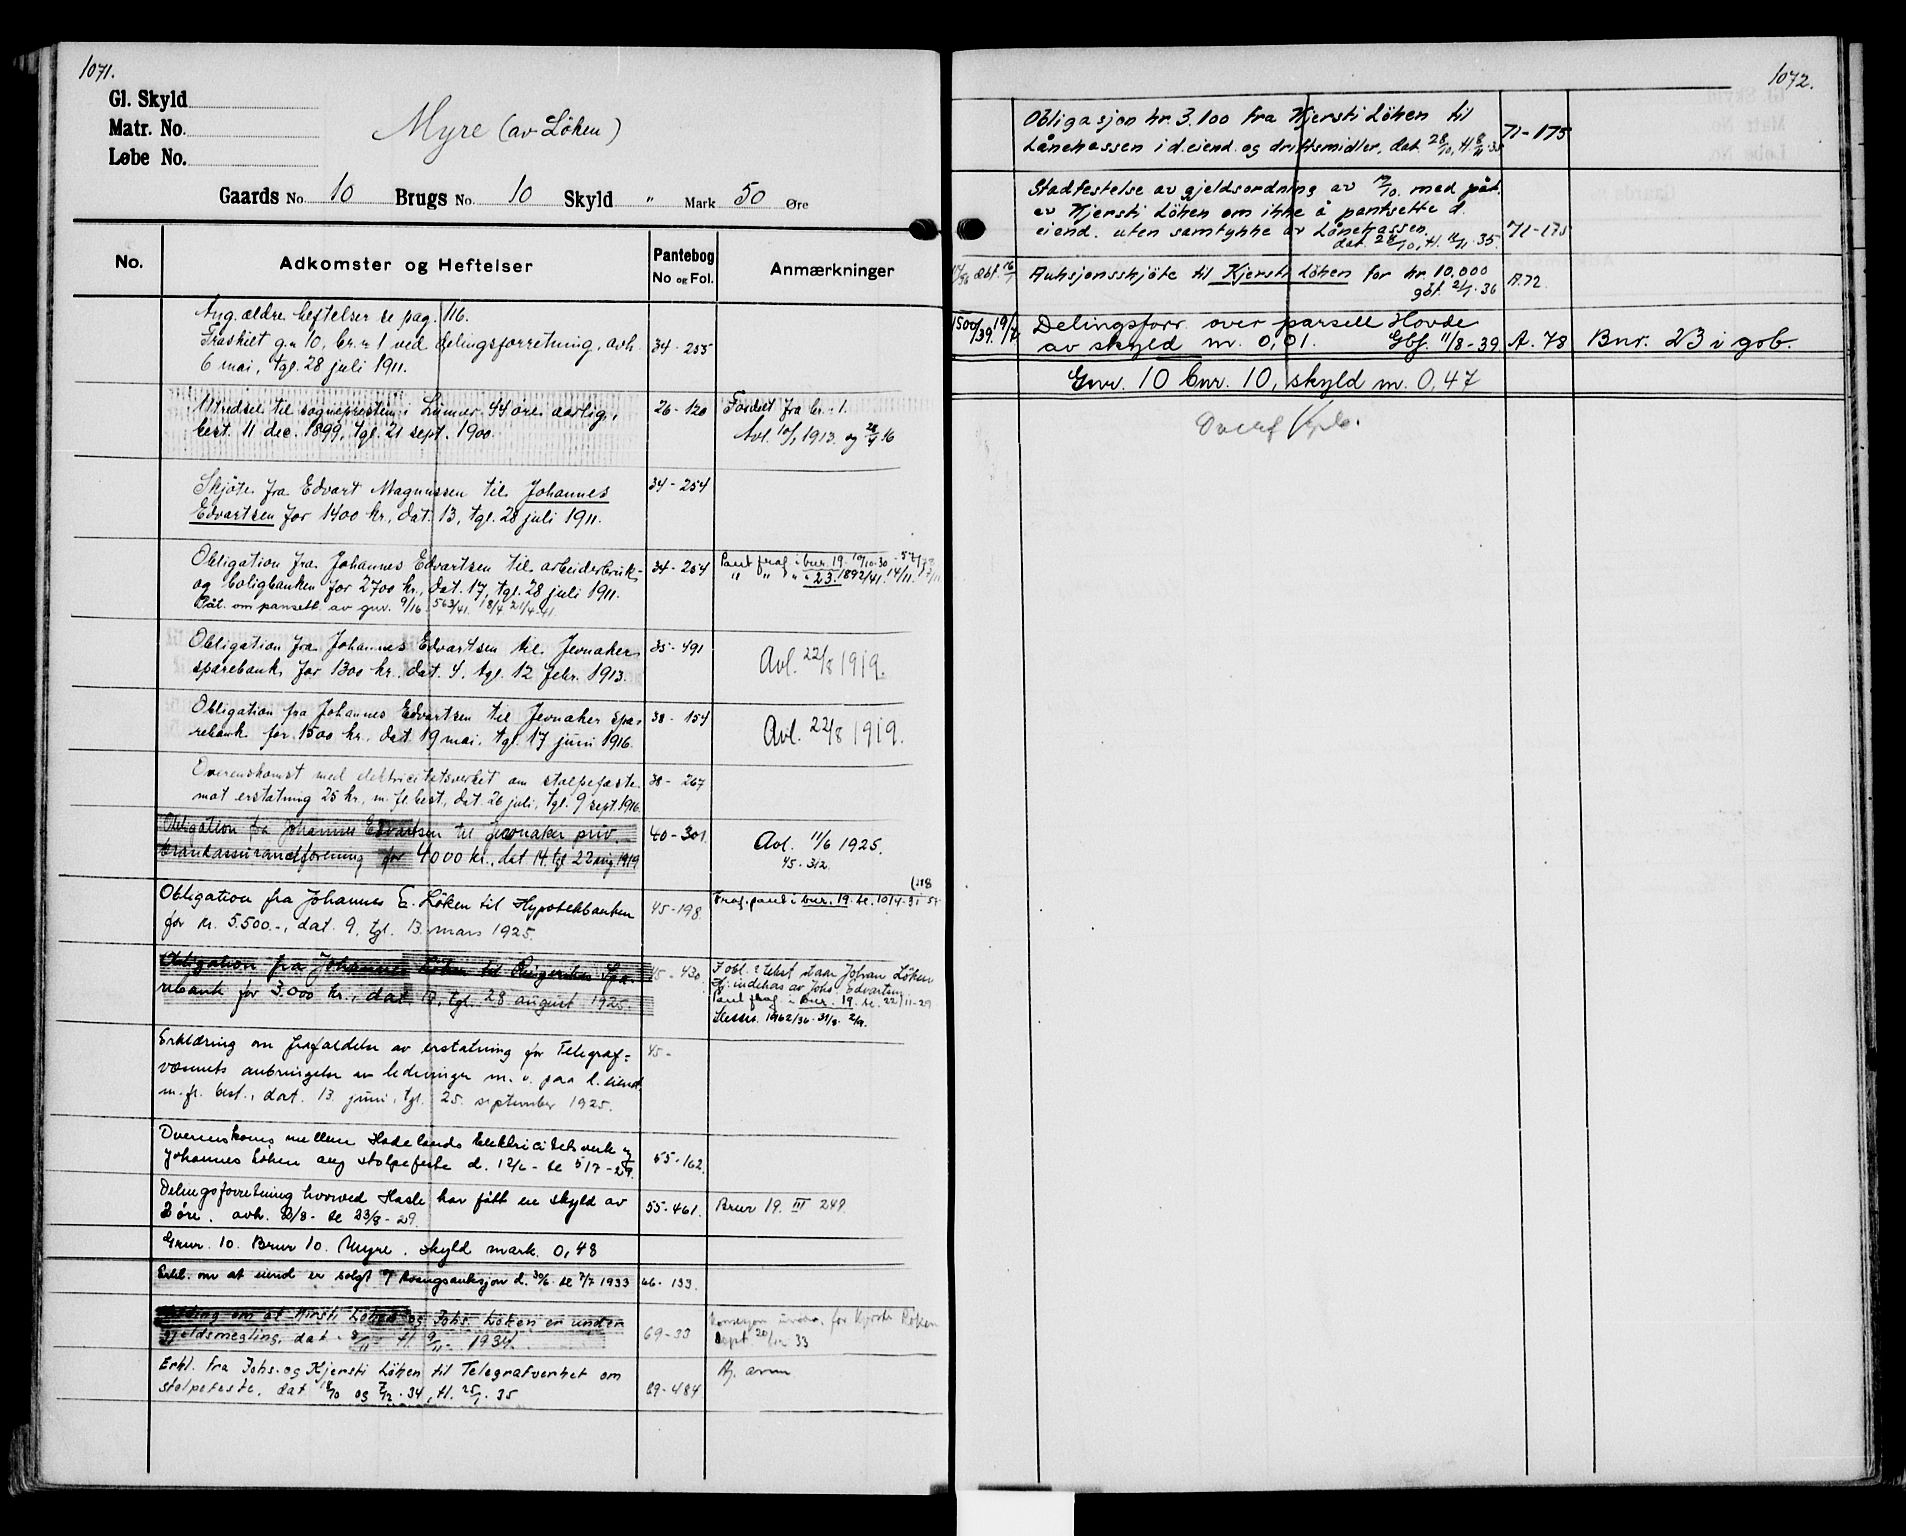 1071.
Gl. Skyld
Matr. No.
Løbe No.
Myre (av Løken)
Gaards No. 10 Brugs No. 10 Skyld " Mark 50 Øre
No. Adkomster og Heftelser Pantebog No og Fol. Anmærkninger
Ang. ældre heftelser se pag. 116.
Fraskilt g.n 10, br.n 1 ved delingsforretning, avh. 34-255
6 mai, tgl. 28 juli 1911.
til sognepresten i Lunner 44 øre aarlig, 26-120 fra br. 1.
best. 11 dec. 1899, tgl. 21 sept. 1900. Avl. 10/1 1913 og
Skjøte fra Edvart Magnussen til Johannes 34-254
Edvartsen for 1400 kr., dat. 13, tgl. 28 juli 1911.
Obligation fra Johannes Edvartsen til arbeiderbruk- 34-254 Pant fraf. i bnr. 19. 10/10-30
og boligbanken for 2700 kr., dat. 17, tgl. 28 juli 1911. " " " i 23. 1892/41. 14/11.
Påt. om pansett. av gnr. 9/16. 563/41. 18/4 21/4-41.
Obligation fra Johannes Edvartsen til Jevnaker 35-491
sparebank for 1300 kr., dat. 4, tgl. 12 febr. 1913. Avl. 22/8 1919.
Obligation fra Johannes Edvartsen til Jevnaker spa- 38-154
rebank for 1500 kr., dat. 19 mai, tgl. 17 juni 1916. Avl. 22/8 1919.
Overenskomst med elektricitetsverket om stolpefæste 38-267
mot erstatning 25 kr., m. fl. best., dat. 26 juli, tgl. 9 sept. 1916.
Obligation fra Johannes Edvartsen til Jevnaker priv. 40-301. Avl. 11/6 1925.
brankassuranceforening for 4000 kr., dat 14. tgl 22 aug. 1919 45-312.
Obligation fra Johannes E. Løken til Hypotekbanken 45-198 Fraf. pant i bnr. 19. te. 10/4-31
for kr. 5.500.-, dat. 9, tgl. 13. mars 1925.
Obligation fra Johannes Løken til Ringerikes Spa- 45-430 I obl.s tekst staar Johan Løken
rebank for 3.000 kr., dat. 12, tgl. 28 august 1925. Hj. indehas av Johs. Edvartsen
Pant fraf. i bnr. 19. te. 22/11-29
Slettes. 1962/36. 31/8. 2/9.
Erklæring om frafaldelse av erstatning for Telegraf- 45-
væsenets anbringelse av ledninger m. v. paa d. eiend.
m. fl. best., dat. 13. juni, tgl. 25. september 1925.
Overenskoms mellem Hadelands Elektricitetsverk og
Johannes Løken ang stolpefeste d. 12/6- te 5/7-29. 55-162.
Delingsforretning hvorved Hasle har fått en skyld av
2 øre. avh. 2/8- te 23/8-29. 55-461. Bnr 19. III 249.
Gnr. 10. Bnr 10. Myre. skyld mark. 0,48
Erkl. om at eiend er solgt v/ tvangsauksjon d. 30/6. te 7/7 1933 66-133.
Melding om at Kirsti Løken og Johs. Løken er under
gjeldsmegling, dat. 8/11 tl. 9/11. 1934. 69-33
Erkl. fra Johs. og Kjersti Løken til Telegrafverket om
stolpefeste. dat. 18/10 og 7/12.34, tl. 25/1.35 69-484
1072.
Obligasjon kr. 3.100 fra Kjersti Løken til
Lånekassen i d. eiend. og driftsmidler, dat. 28/10, tl. 8/11.35 71-175
Stadfestelse av gjeldsordning av 17/10. med påt.
av Kjersti Løken om ikke å pantsette d.
eiend. uten samtykke av Lånekassen. 71-175
dat. 28/10, tl. 11/11.35.
Auksjonsskjøte til Kjersti Løken for kr. 10.000 A.72.
gbf. 2/1.36
1500/39. 19/7 Delingsforr. over parsell Hovde
av skyld m. 0,01. Gbf. 11/8-39 A. 78 Bnr. 23 i gob.
Gnr. 10 bnr. 10, skyld m. 0,47